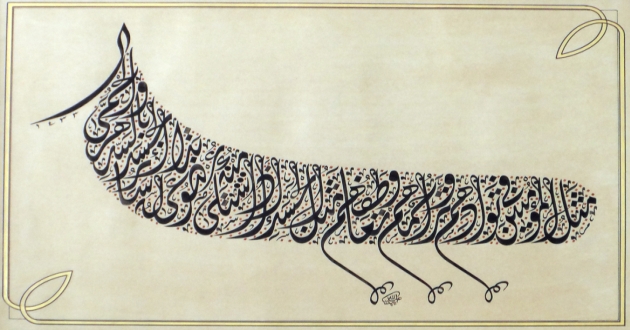 مثل المؤمنين في توادهم وتراحمهم وتعاطفهم مثل الجسد إذا اشتكى منه عضو تداعى له سائر الجسد بالسهر والحمى
١٤٣٣